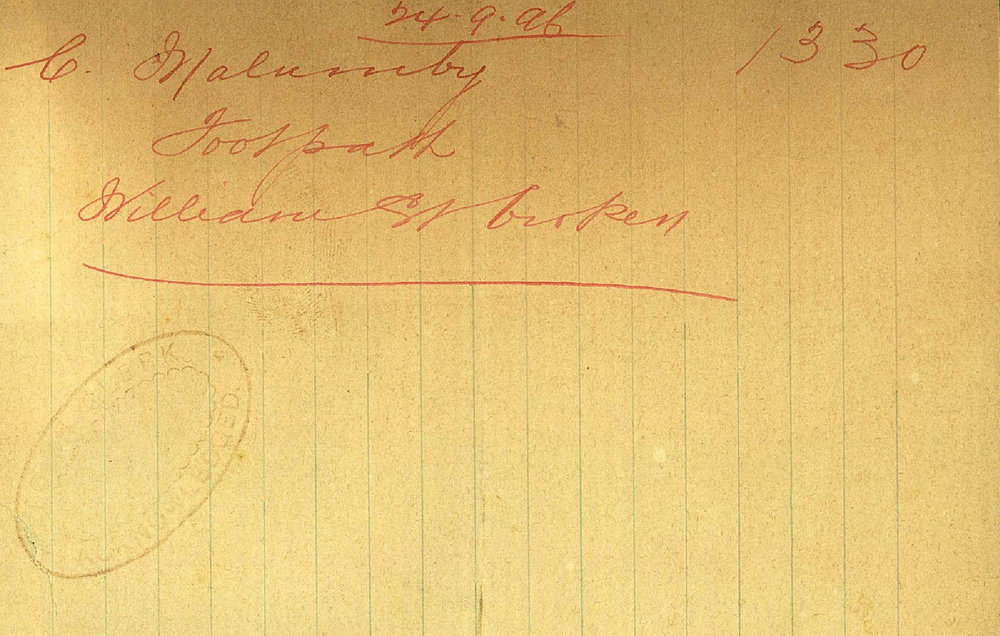 24.9.96
C. Malumby 1330
Footpath
William St broken